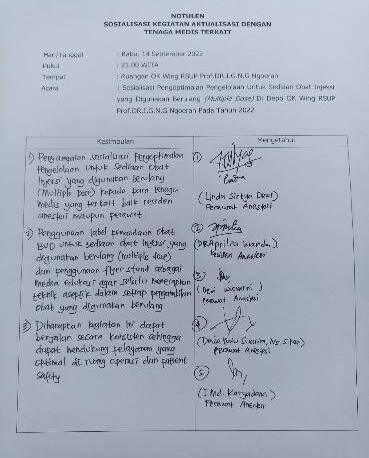 NOTULEN
SOSIALISASI KEGIATAN AKTUALISASI DENGAN
TENAGA MEDIS TERKAIT
Hari/Tanggal : Rabu, 14 September 2022
Pukul : 21.00 WITA
Tempat : Ruangan OK Wing RSUP Prof.DR.I.G.N.G Ngoerah
Acara : Sosialisasi Pengoptimalan Pengelolaan Untuk Sediaan Obat Injeksi
yang Digunakan Berulang (Multiple Dose) Di Depo OK Wing RSUP
Prof.DR.I.G.N.G Ngoerah Pada Tahun 2022
Kesimpulan
1) Penyampaian sosialisasi pengoptimalan
pengelolaan untuk sediaan obat
injeksi yang digunakan berulang
(Multiple Dose) kepada para tenaga
medis yang terkait baik residen
anestesi maupun perawat
2) Penggunaan label penandaan obat
BUD untuk sediaan obat injeksi yang
digunakan berulang (multiple dose)
dan penggunaan flyer stand sebagai
media edukasi agar selalu menerapkan
teknik aseptik dalam setiap pengambilan
obat yang digunakan berulang
3) Diharapkan kegiatan ini dapat
berjalan secara konsisten sehingga
dapat mendukung pelayanan yang
optimal di ruang operasi dan patient
safety
Mengetahui
1
(Linda Sintya Dewi)
Perawat Anestesi
2
(DR Aprilia Wanda)
Residen Anestesi
3
(Dewi Suwarni)
Perawat Anestesi
4
Perawat Anestesi
5
(I Md. Karyadana)
Perawat Anestesi